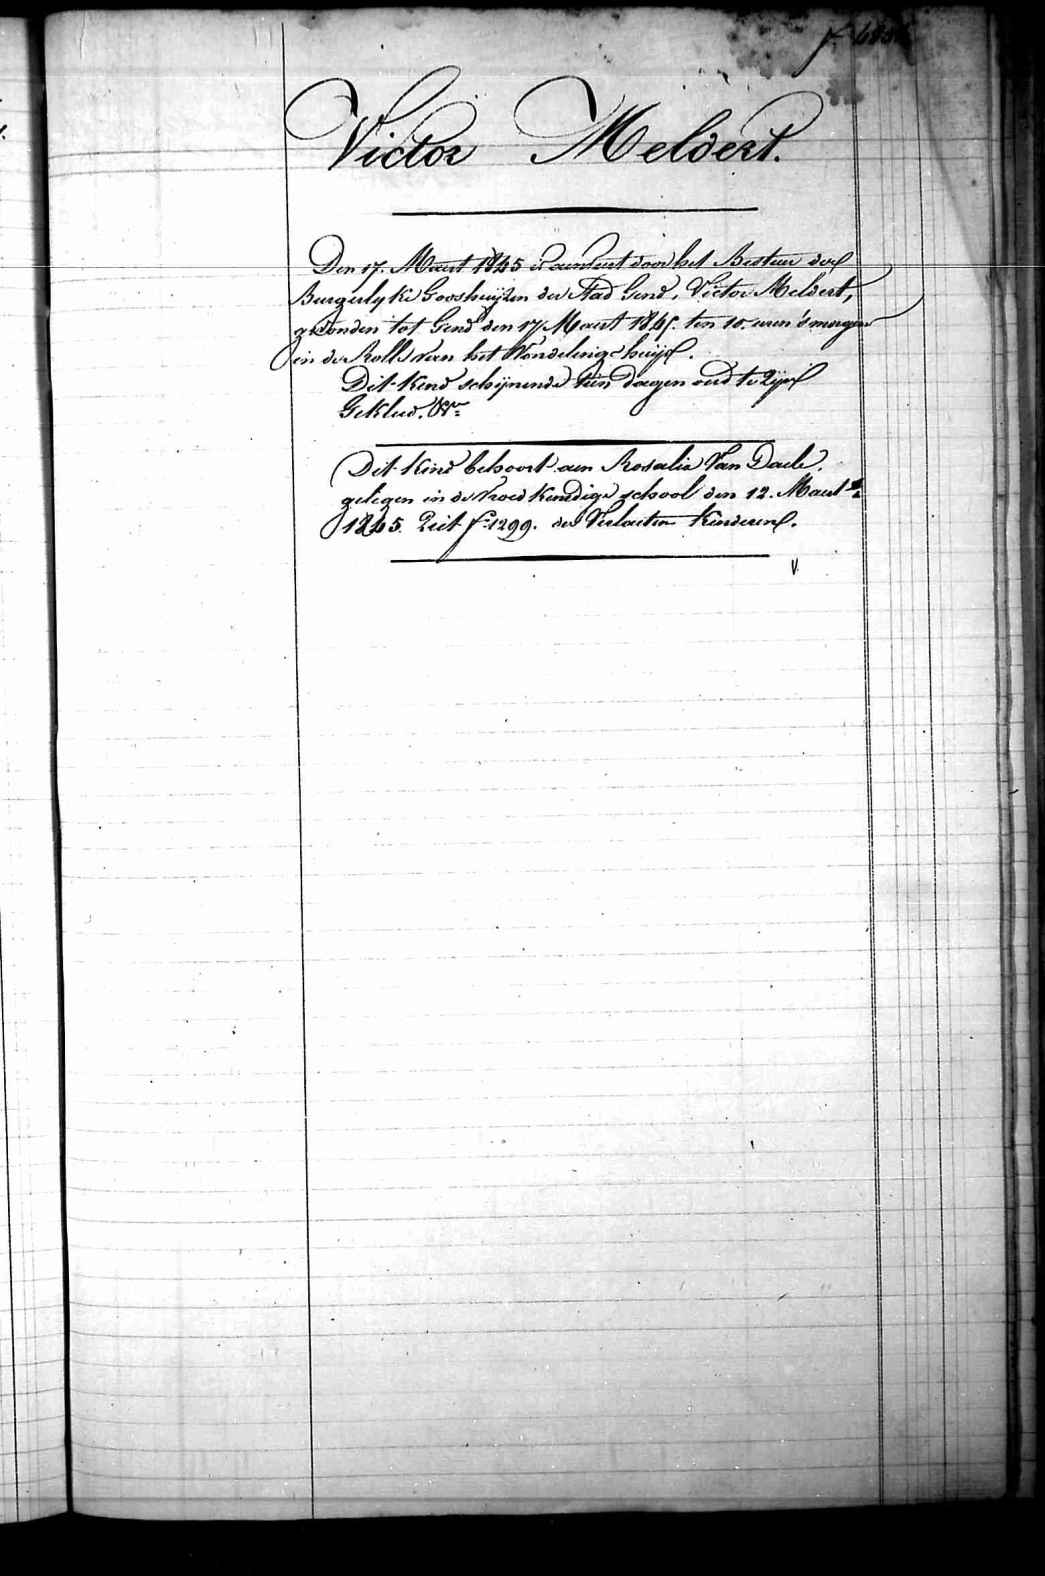 Victor Meldert.
Den 17. Maert 1845 is aenveert door het Bestuer der
Burgerlyke Godshuijzen der Stad Gend, Victor Meldert,
gevonden tot Gend den 17 Maert 1845. ten 10 uren 's morgens
in de Rolle van het Vondelinge huijs.
Dit kind schijnende tien daegen oud te zijn
Gekleed. &a
Dit kind behoort aen Rosalie Van Daele.
gelegen in de Vroedkundige school den 12. Maert
1845. Zeit fo 1299. der Verlaeten Kinderen.
V